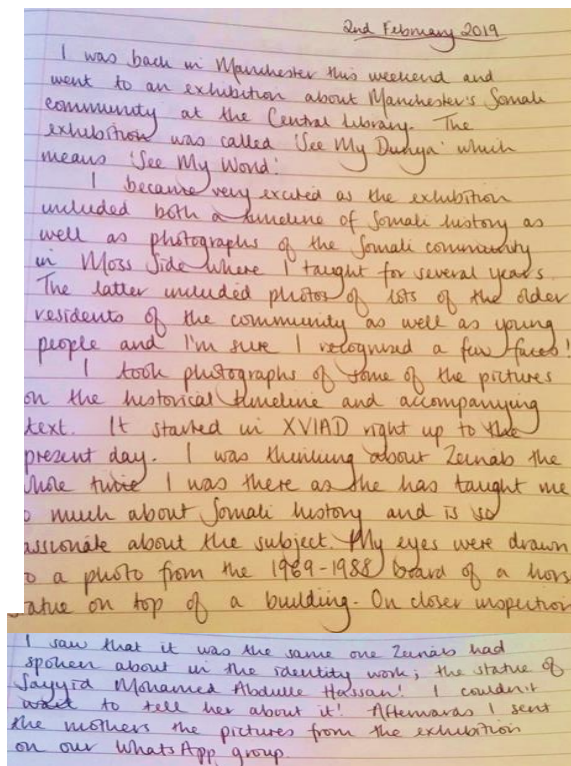 2nd February 2019
I was back in Manchester this weekend and
went to an exhibition about Manchester's Somali
community at the Central Library. The
exhibition was called 'See My Dunya' which
means 'See My World'.
I became very excited as the exhibition
included both a timeline of Somali history as
well as photographs of the Somali community
in Moss Side where I taught for several years.
The latter included photos of lots of the older
residents of the community as well as young
people and I'm sure I recognised a few faces!
I took photographs of some of the pictures
on the historical timeline and accompanying
text. It started in XVIAD right up to the
present day. I was thinking about Zeinab the
hole time I was there as she has taught me
o much about Somali history and is so
assionate about the subject. My eyes were drawn
o a photo from the 1969-1988 board of a hors
tatue on top of a building. On closer inspection
I saw that it was the same one Zeinab had
spoken about in the identity work; the statue of
Sayyid Mohamed Abdulle Hassan! I couldn't
wait to tell her about it! Afterwards I sent
the mothers the pictures from the exhibition
on our WhatsApp group.